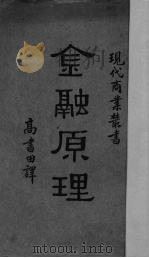 現代商業叢書
金融原理
高書田譯